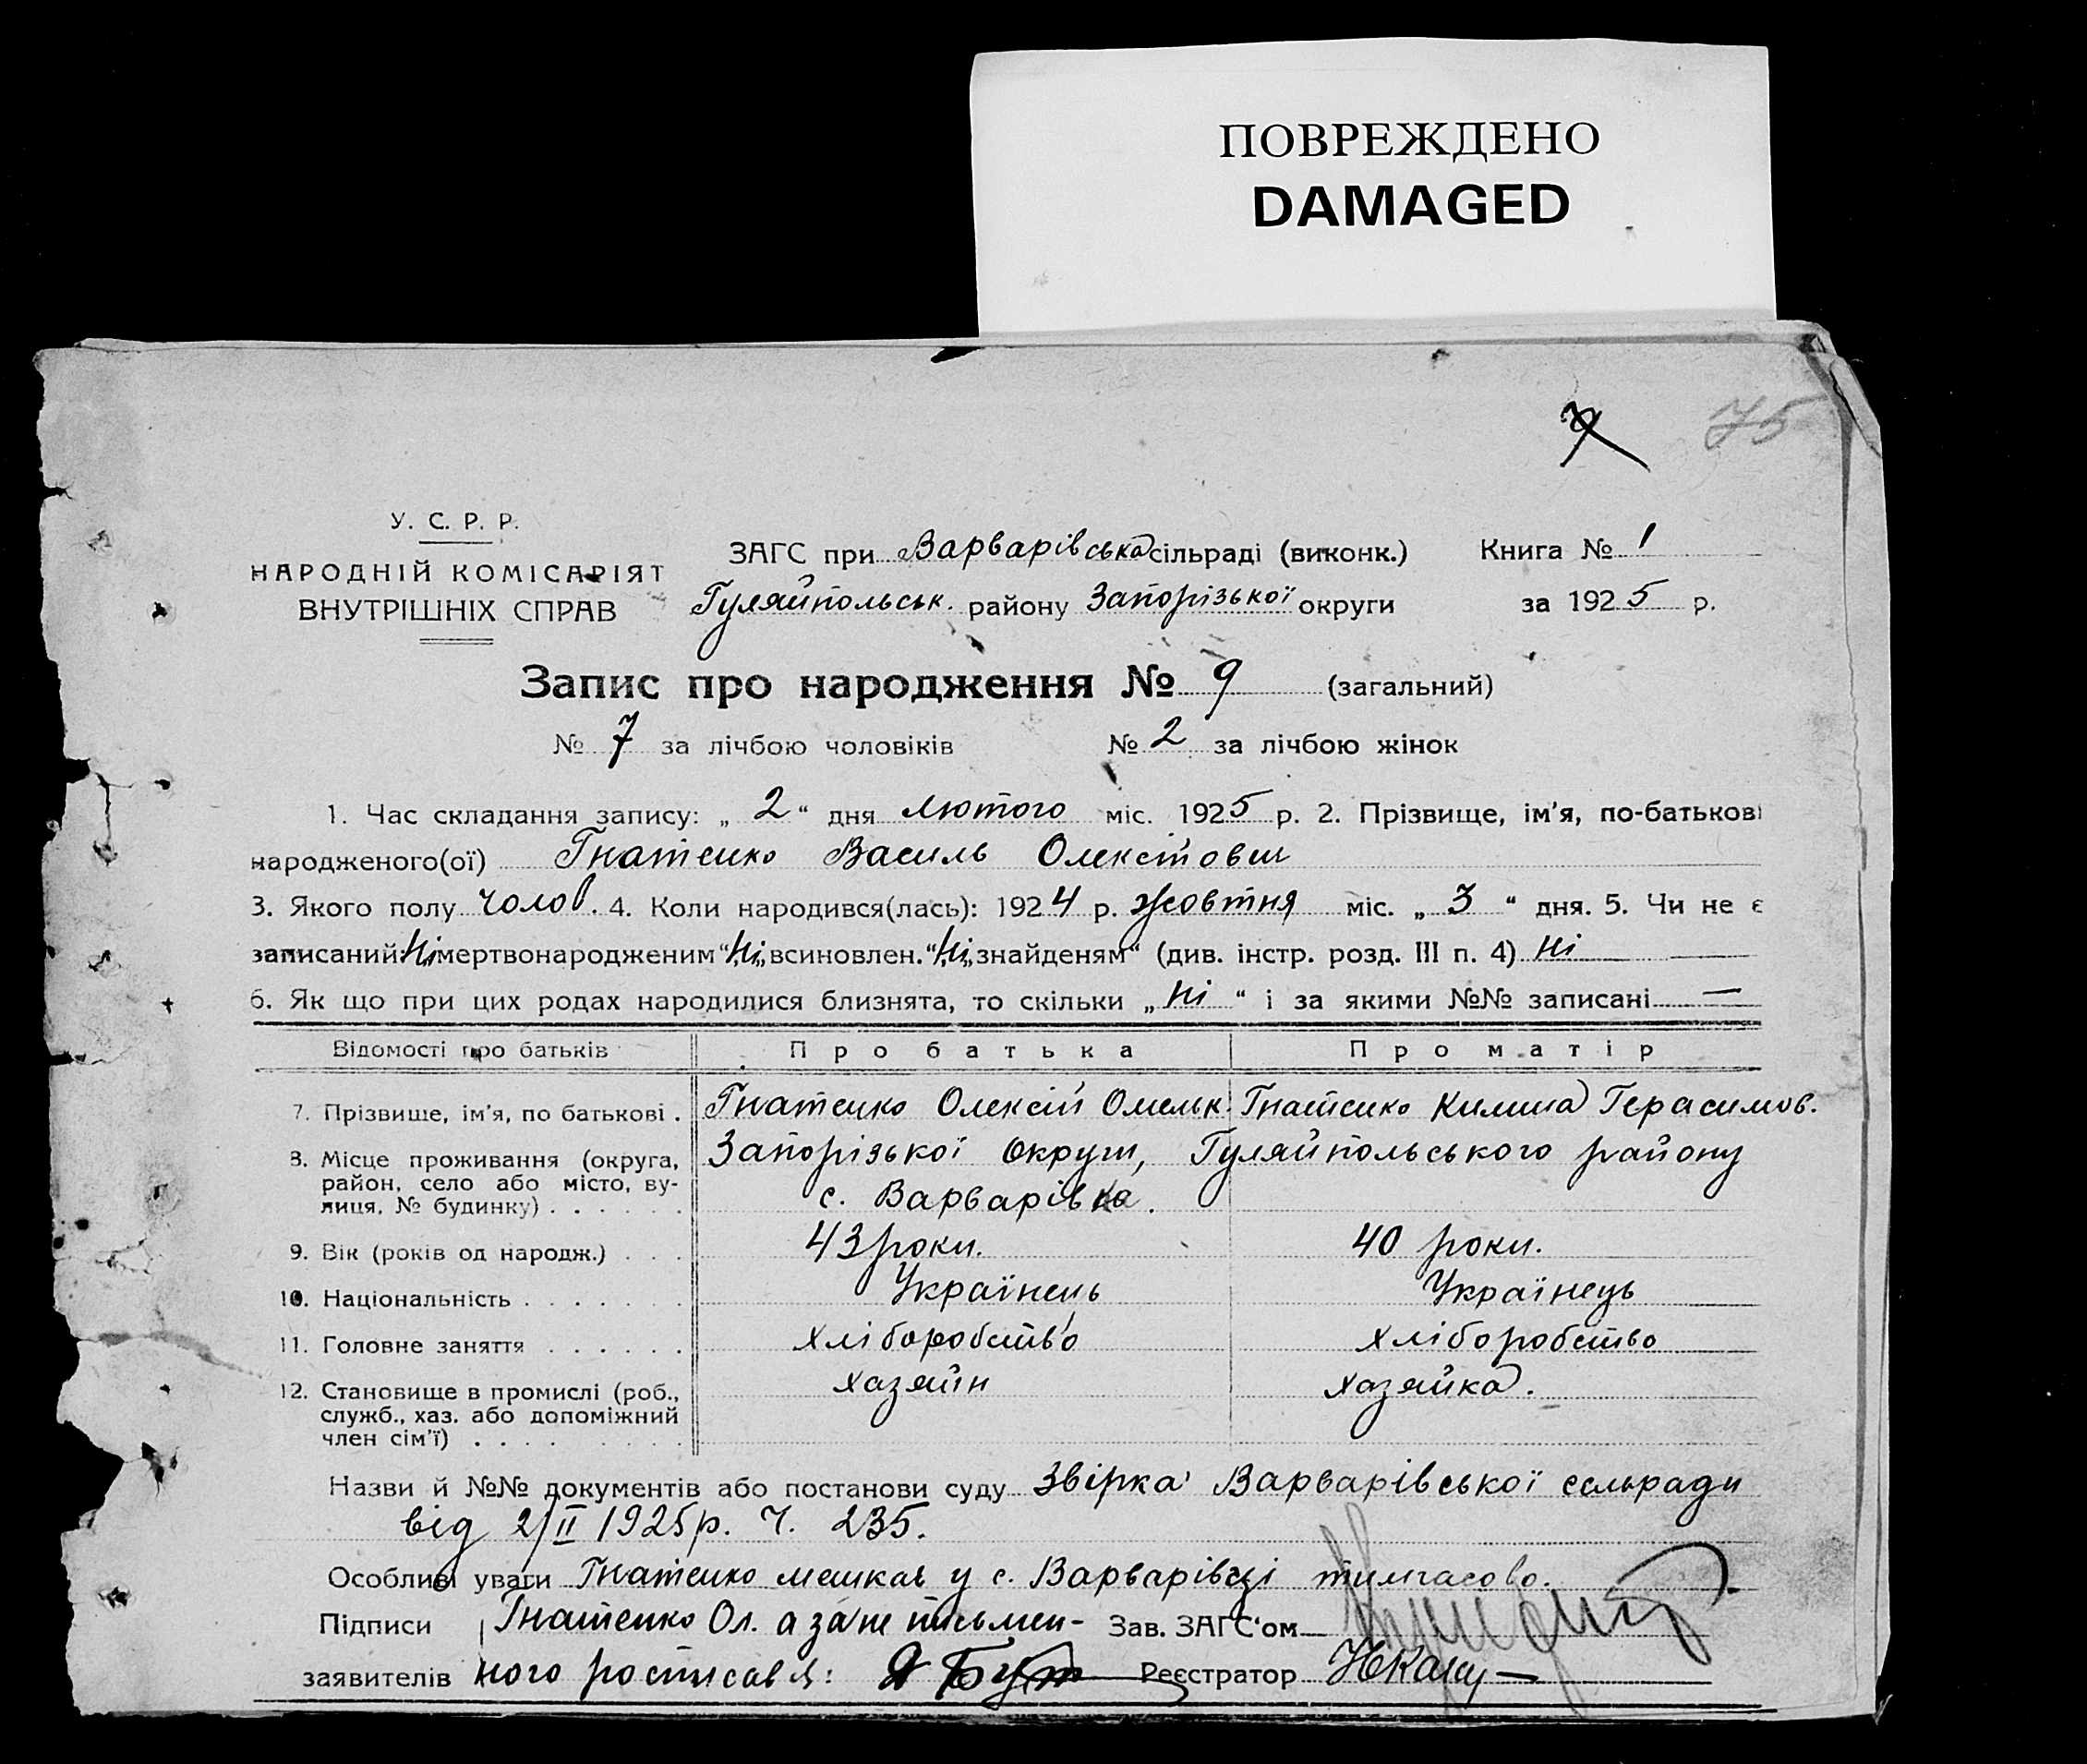 ПОВРЕЖДЕНО
DAMAGED
75
У. С. Р. Р.
НАРОДНІЙ КОМІСАРІЯТ
ВНУТРІШНІХ СПРАВ
ЗАГС при Варварівська сільраді (виконк.) Книга № 1
Гуляйпольськ. району Запорізької округи за 1925 р.
Запис про народження № 9 (загальний)
№ 7 за лічбою чоловіків № 2 за лічбою жінок
1. Час складання запису: „ 2 “ дня лютого міс. 1925 р. 2. Прізвище, ім'я, по-батькові
народженого(ої) Гнатенко Василь
3. Якого полу чолов. 4. Коли народився(лась): 1924 р. жовтня міс. „ 3 “ дня. 5. Чи не є
записаний „Ні„мертвонародженим“ „Ні„всиновлен.“ „Ні„знайденям“ (див. інстр. розд. III п. 4) Ні
6. Як що при цих родах народилися близнята, то скільки „ Ні “ і за якими №№ записані —
Відомості про батьків Про батька Про матір
7. Прізвище, ім'я, по батькові . Гнатенко Олексій Омельк. Гнатенко Герасимов.
8. Місце проживання (округа, Запорізької Округи, Гуляйпольського району
район, село або місто, ву- с. Варварівка.
лиця, № будинку) . . . . . .
9. Вік (років од народж.) . . . 43 роки. 40 роки.
10. Національність . . . . . . . Українець Українець
11. Головне заняття . . . . . . хліборобство хліборобство
12. Становище в промислі (роб., хазяїн хазяйка.
служб., хаз. або допоміжний
член сім'ї) . . . . . . . .
Назви й №№ документів або постанови суду Звірка Варварівської сельради
від 2/II 1925 р. Ч. 235.
Особливі уваги Гнатенко мешкав у с. Варварівці тимчасово.
Підписи Гнатенко Ол. а за не письмен- Зав. ЗАГС'ом
заявителів ного росписався: Реєстратор